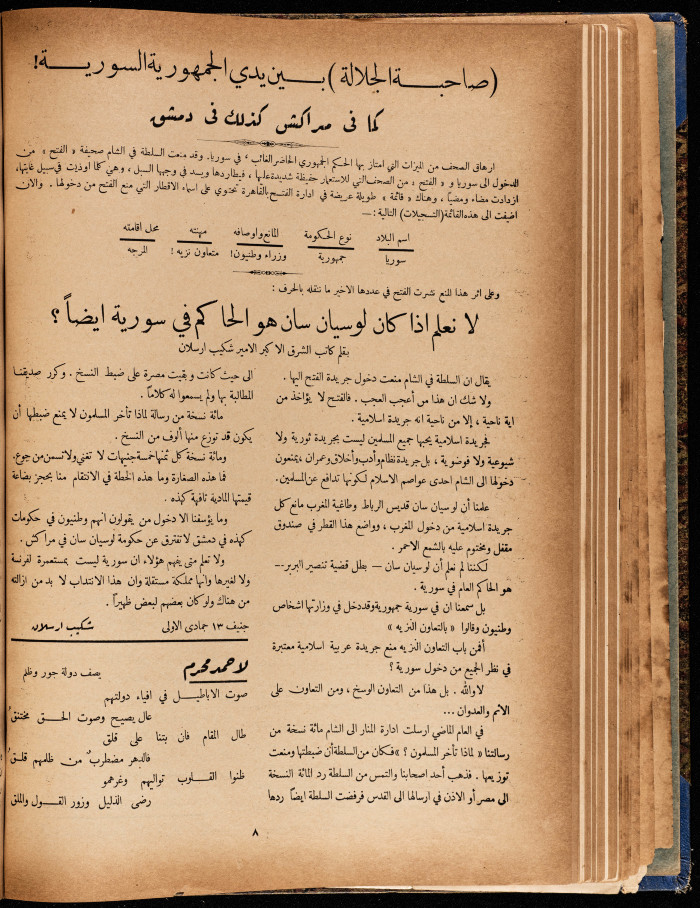 (صاحبة الجلالة) بين يدي الجمهورية السورية!
كما فى مراكش كذلك فى دمشق
ارهاق الصحف من الميزات التي امتاز بها الحكم الجمهوري الحاضر الغائب، في سوريا. وقد منعت السلطة في الشام صحيفة «الفتح» من
الدخول الى سوريا و «الفتح» من الصحف التي للاستعمار حفيظة شديدة عليها، فيطاردها ويسد في وجهها السبل، وهي كلما اوذيت في سبيل غايتها،
ازدادت مضاء ومضياً، وهناك «قائمة» طويلة عريضة في ادارة الفتح بالقاهرة تحتوي على اسماء الاقطار التي منع الفتح من دخولها. والآن
اضيفت الى هذه القائمة (التسجيلات) التالية:—
اسم البلاد نوع الحكومة المانع واوصافه مهنته محل اقامته
سوريا جمهورية وزراء وطنيون! متعاون نزيه! المرجه
وعلى اثر هذا المنع نشرت الفتح في عددها الاخير ما ننقله بالحرف:
لا نعلم اذا كان لوسيان سان هو الحاكم في سورية ايضاً؟
بقلم كاتب الشرق الاكبر الامير شكيب ارسلان
يقال ان السلطة في الشام منعت دخول جريدة الفتح اليها.
ولا شك ان هذا من أعجب العجب. فالفتح لا يؤاخذ من
اية ناحية، إلا من ناحية انه جريدة اسلامية.
فجريدة اسلامية يحبها جميع المسلمين ليست بجريدة ثورية ولا
شيوعية ولا فوضوية، بل جريدة نظام وأدب وأخلاق وعمران، يمنعون
دخولها الى الشام احدى عواصم الاسلام لكونها تدافع عن المسلمين.
علمنا أن لوسيان سان قديس الرباط وطاغية المغرب مانع كل
جريدة اسلامية من دخول المغرب، وواضع هذا القطر في صندوق
مقفل ومختوم عليه بالشمع الاحمر.
لكننا لم نعلم أن لوسيان سان — بطل قضية تنصير البربر --
هو الحاكم العام في سورية.
بل سمعنا ان في سورية جمهورية وقد دخل في وزارتها اشخاص
وطنيون وقالوا «بالتعاون النزيه»
أفمن باب التعاون النزيه منع جريدة عربية اسلامية معتبرة
في نظر الجميع من دخول سورية؟
لا والله. بل هذا من التعاون الوسخ، ومن التعاون على
الاثم والعدوان...
في العام الماضي ارسلت ادارة المنار الى الشام مائة نسخة من
رسالتنا «لماذا تأخر المسلمون؟» فكان من السلطة أن ضبطتها ومنعت
توزيعها. فذهب أحد اصحابنا والتمس من السلطة رد المائة النسخة
الى مصر أو الاذن في ارسالها الى القدس فرفضت السلطة ايضاً ردها
الى حيث كانت وبقيت مصرة على ضبط النسخ. وكرر صديقنا
المطالبة بها ولم يسمعوا له كلاماً.
مائة نسخة من رسالة لماذا تأخر المسلمون لا يمنع ضبطها أن
يكون قد توزع منها ألوف من النسخ.
ومائة نسخة كل ثمنها خمسة جنيهات لا تغني ولا تسمن من جوع.
فما هذه الصغارة وما هذه الخطة في الانتقام منا بحجز بضاعة
قيمتها المادية تافهة كهذه.
وما يؤسفنا الا دخول من يقولون انهم وطنيون في حكومات
كهذه في دمشق لا تفترق عن حكومة لوسيان سان في مراكش.
ولا نعلم متى يفهم هؤلاء ان سورية ليست بمستعمرة لفرنسة
ولا لغيرها وانها مملكة مستقلة وان هذا الانتداب لا بد من ازالته
من هناك ولو كان بعضهم لبعض ظهيراً.
جنيف ١٣ جمادى الاولى شكيب ارسلان
لاحمد محرم يصف دولة جور وظلم
صوت الاباطيل في افياء دولتهم
عال يصيح وصوت الحق مختنق
طال المقام فان بتنا على قلق
فالدهر مضطرب من ظلمهم قلق
ظنوا القلوب تواليهم وغرهمو
رضى الذليل وزور القول والملق
٨